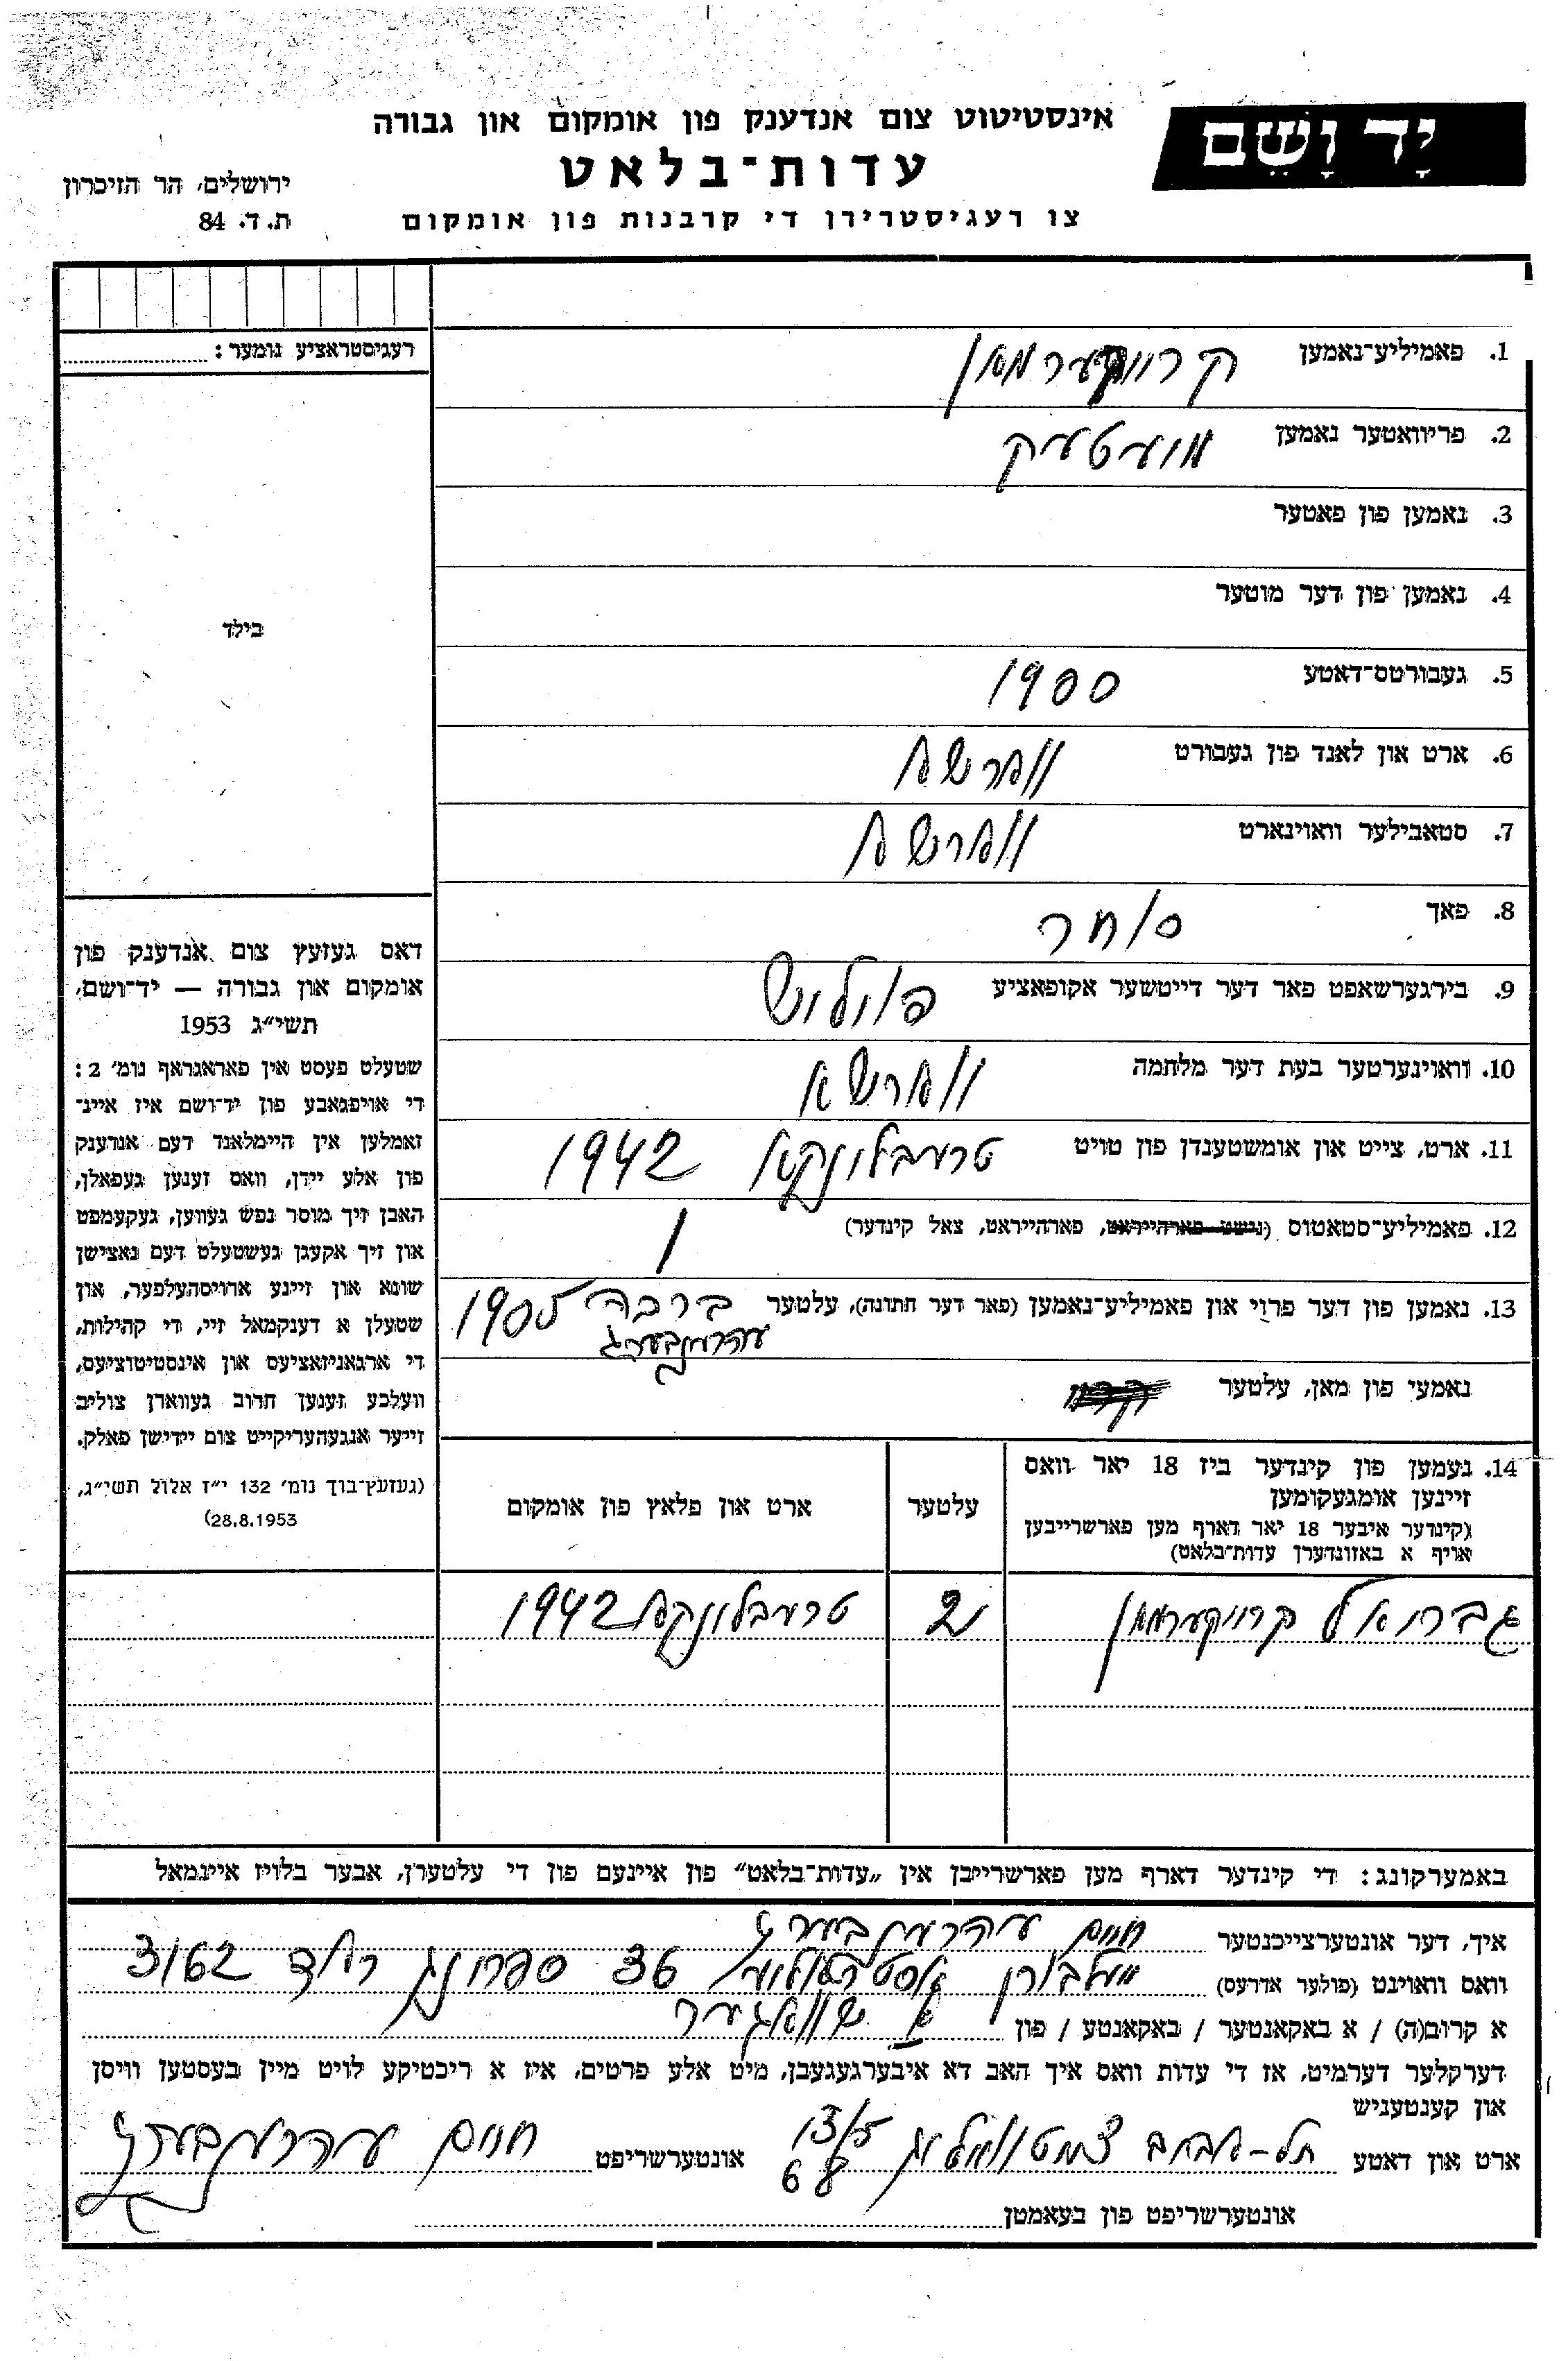 יָד וָשֵׁם
אינסטיטוט צום אנדענק פון אומקום און גבורה
עדות־בלאט
צו רעגיסטרירן די קרבנות פון אומקום
ירושלים, הר הזיכרון
ת. ד. 84
רעגיסטראציע נומער:
בילד
דאס געזעץ צום אנדענק פון
אומקום און גבורה — יד־ושם,
תשי״ג 1953
שטעלט פעסט אין פאראגראף נומ׳ 2:
די אויפגאבע פון יד־ושם איז איינ־
זאמלען אין היימלאנד דעם אנדענק
פון אלע יידן, וואס זענען געפאלן,
האבן זיך מוסר נפש געווען, געקעמפט
און זיך אקעגן געשטעלט דעם נאצישן
שונא און זיינע ארויסהעלפער, און
שטעלן א דענקמאל זיי, די קהילות,
די ארגאניזאציעס און אינסטיטוציעס,
וועלכע זענען חרוב געווארן צוליב
זייער אנגעהעריקייט צום יידישן פאלק.
(געזעץ־בוך נומ׳ 132 י״ז אלול תשי״ג,
28.8.1953)
1. פאמיליע־נאמען קרוקערמאן
2. פריוואטער נאמען מועטעק
3. נאמען פון פאטער
4. נאמען פון דער מוטער
5. געבורטס־דאטע 1900
6. ארט און לאנד פון געבורט ווארשא
7. סטאבילער וואוינארט ווארשא
8. פאך סוחר
9. בירגערשאפט פאר דער דייטשער אקופאציע פויליש
10. וואוינערטער בעת דער מלחמה ווארשא
11. ארט, צייט און אומשטענדן פון טויט טרעבלונקא 1942
12. פאמיליע־סטאטוס (נישט פארהייראט, פארהייראט, צאל קינדער) 1
13. נאמען פון דער פרוי און פאמיליע־נאמען (פאר דער חתונה), עלטער ברכה 1905
עהרענבערג
נאמעי פון מאן, עלטער
14. נעמען פון קינדער ביז 18 יאר וואס
זיינען אומגעקומען
(קינדער איבער 18 יאר דארף מען פארשרייבען
אויף א באזונדערן עדות־בלאט)
עלטער
ארט און פלאץ פון אומקום
גבריאל קרויקערמאן 2 טרעבלונקא 1942
באמערקונג: די קינדער דארף מען פארשרייבן אין „עדות־בלאט״ פון איינעם פון די עלטערן, אבער בלויז איינמאל
איך, דער אונטערצייכנטער חיים עהרענבערג
וואס וואוינט (פולער אדרעס) מעלבורן אוסטראליע 36 ספרונג ראד 3162
א קרוב(ה) / א באקאנטער / באקאנטע / פון א שוואגער
דערקלער דערמיט, אז די עדות וואס איך האב דא איבערגעגעבן, מיט אלע פרטים, איז א ריכטיקע לויט מיין בעסטען וויסן
און קענטעניש
ארט און דאטע תל-אביב 13/5 68 אונטערשריפט חיים עהרענבערג
אונטערשריפט פון בעאמטן